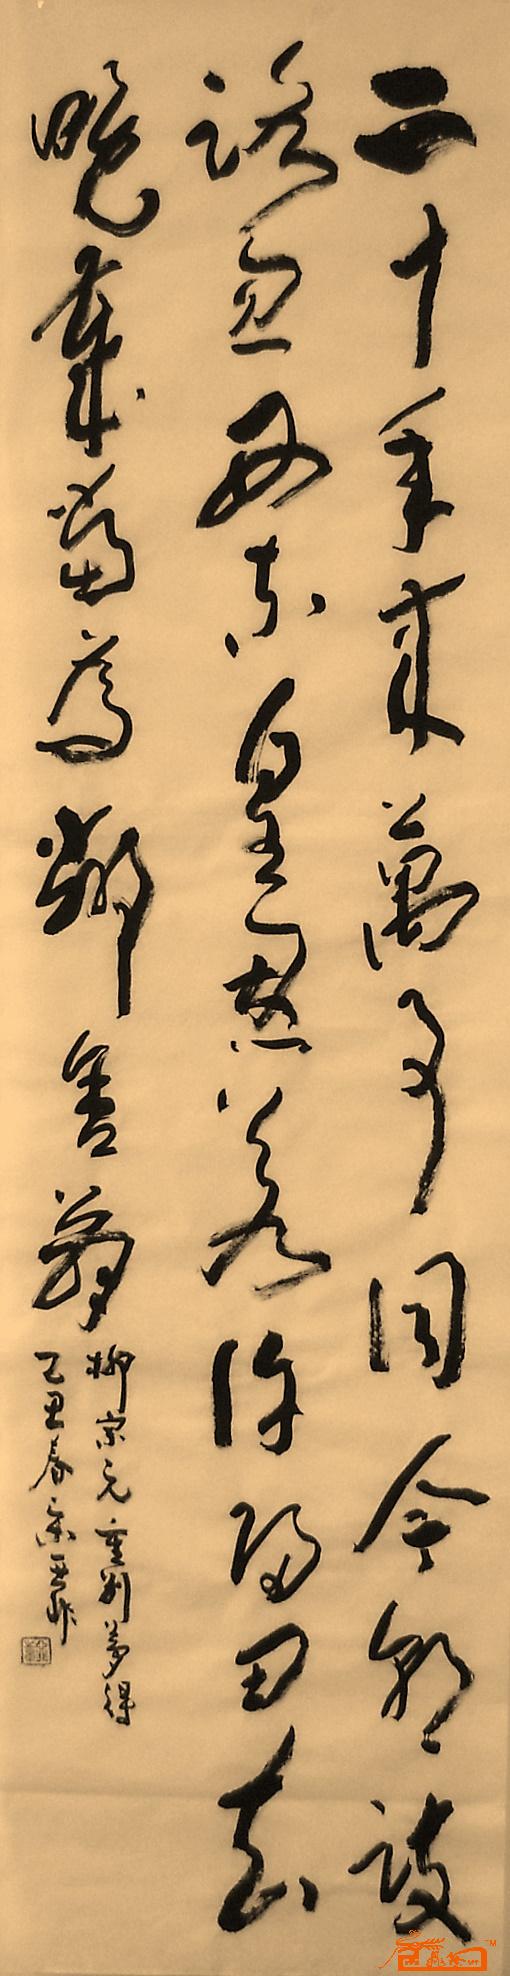 二十年來萬事同今朝歧
路忽西東皇恩若許歸田去
晚歲當為鄰舍翁
柳宗元重别夢得
己丑春